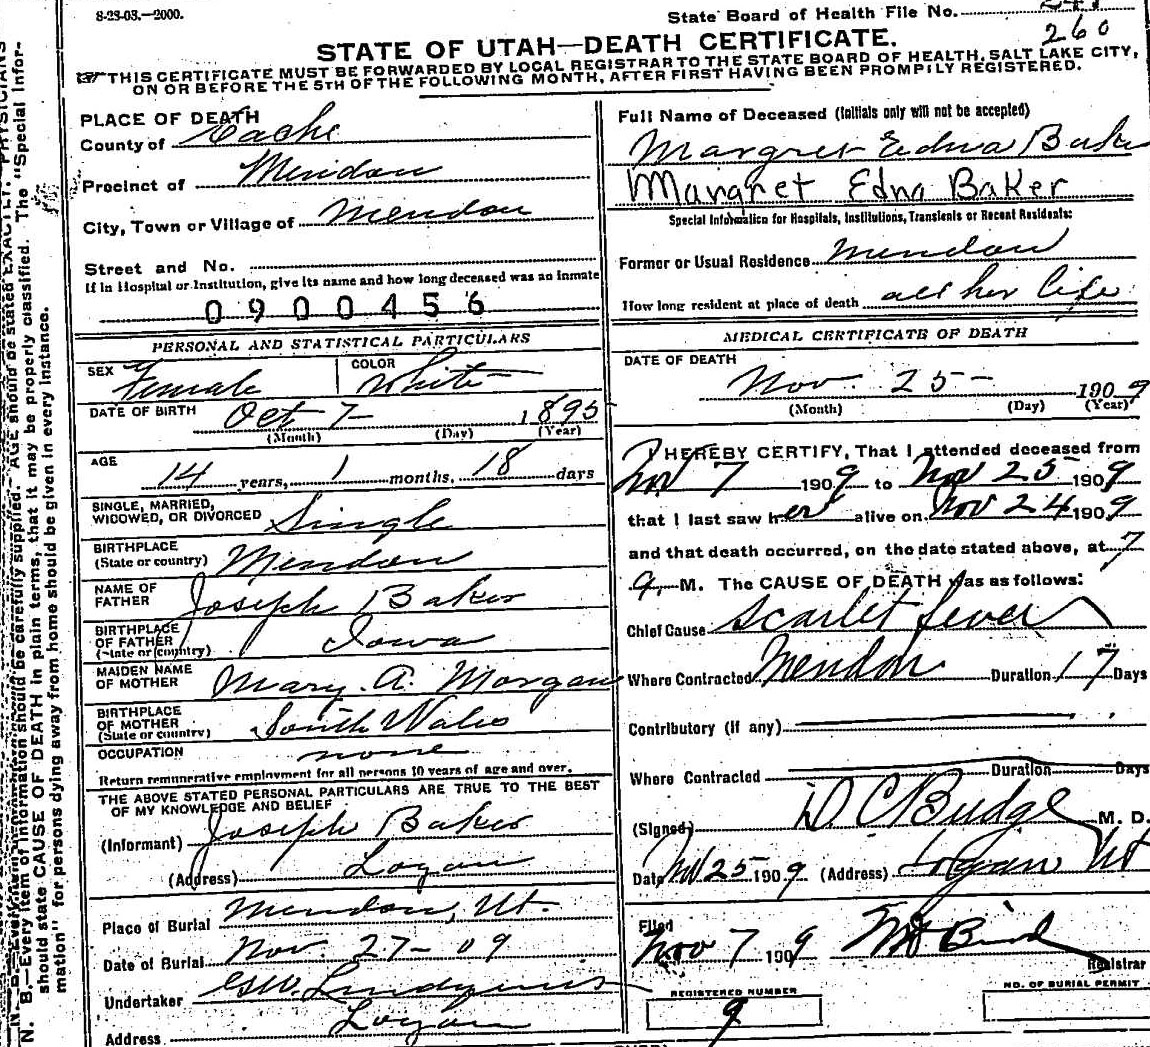 8-23-03.—2000.
State Board of Health File No.
260
STATE OF UTAH—DEATH CERTIFICATE.
THIS CERTIFICATE MUST BE FORWARDED BY LOCAL REGISTRAR TO THE STATE BOARD OF HEALTH, SALT LAKE CITY,
ON OR BEFORE THE 5TH OF THE FOLLOWING MONTH, AFTER FIRST HAVING BEEN PROMPILY REGISTERED.
PLACE OF DEATH
County of Cache
Precinct of Mendon
City, Town or Village of Mendon
Street and No.
If in Hospital or Institution, give its name and how long deceased was an inmate
0900456
PERSONAL AND STATISTICAL PARTICULARS
SEX Female COLOR White
DATE OF BIRTH Oct 7 1895
(Month) (Day) (Year)
AGE
14 years, 1 months, 18 days
SINGLE, MARRIED,
WIDOWED, OR DIVORCED Single
BIRTHPLACE
(State or country) Mendon
NAME OF
FATHER Joseph Baker
BIRTHPLACE
OF FATHER Iowa
(State or country)
MAIDEN NAME
OF MOTHER Mary A. Morgan
BIRTHPLACE
OF MOTHER South Wales
(State or country)
OCCUPATION none
Return remunerative employment for all persons 10 years of age and over.
THE ABOVE STATED PERSONAL PARTICULARS ARE TRUE TO THE BEST
OF MY KNOWLEDGE AND BELIEF
(Informant) Joseph Baker
(Address) Logan
Place of Burial Mendon, Ut.
Date of Burial Nov. 27-09
Undertaker
Address Logan
Full Name of Deceased (Initials only will not be accepted)
Margret Edna Baker
Margret Edna Baker
Special Information for Hospitals, Institutions, Transients or Recent Residents:
Former or Usual Residence Mendon
How long resident at place of death all her life
MEDICAL CERTIFICATE OF DEATH
DATE OF DEATH
Nov. 25- 1909
(Month) (Day) (Year)
I HEREBY CERTIFY, That I attended deceased from
Nov 7 1909 to Nov 25 1909
that I last saw her alive on Nov 24 1909
and that death occurred, on the date stated above, at 7
a M. The CAUSE OF DEATH was as follows:
Chief Cause Scarlet fever
Where Contracted Mendon Duration 17 Days
Contributory (if any)
Where Contracted Duration Days
(Signed) D C Budge M. D.
Date Nov 25 1909 (Address) Logan Ut
Filed
Nov 7 1909
Registrar
REGISTERED NUMBER
9
NO. OF BURIAL PERMIT
N. B.—Every item of information should be carefully supplied. AGE should be stated EXACTLY. PHYSICIANS
should state CAUSE OF DEATH in plain terms, that it may be properly classified. The "Special Infor-
mation" for persons dying away from home should be given in every instance.